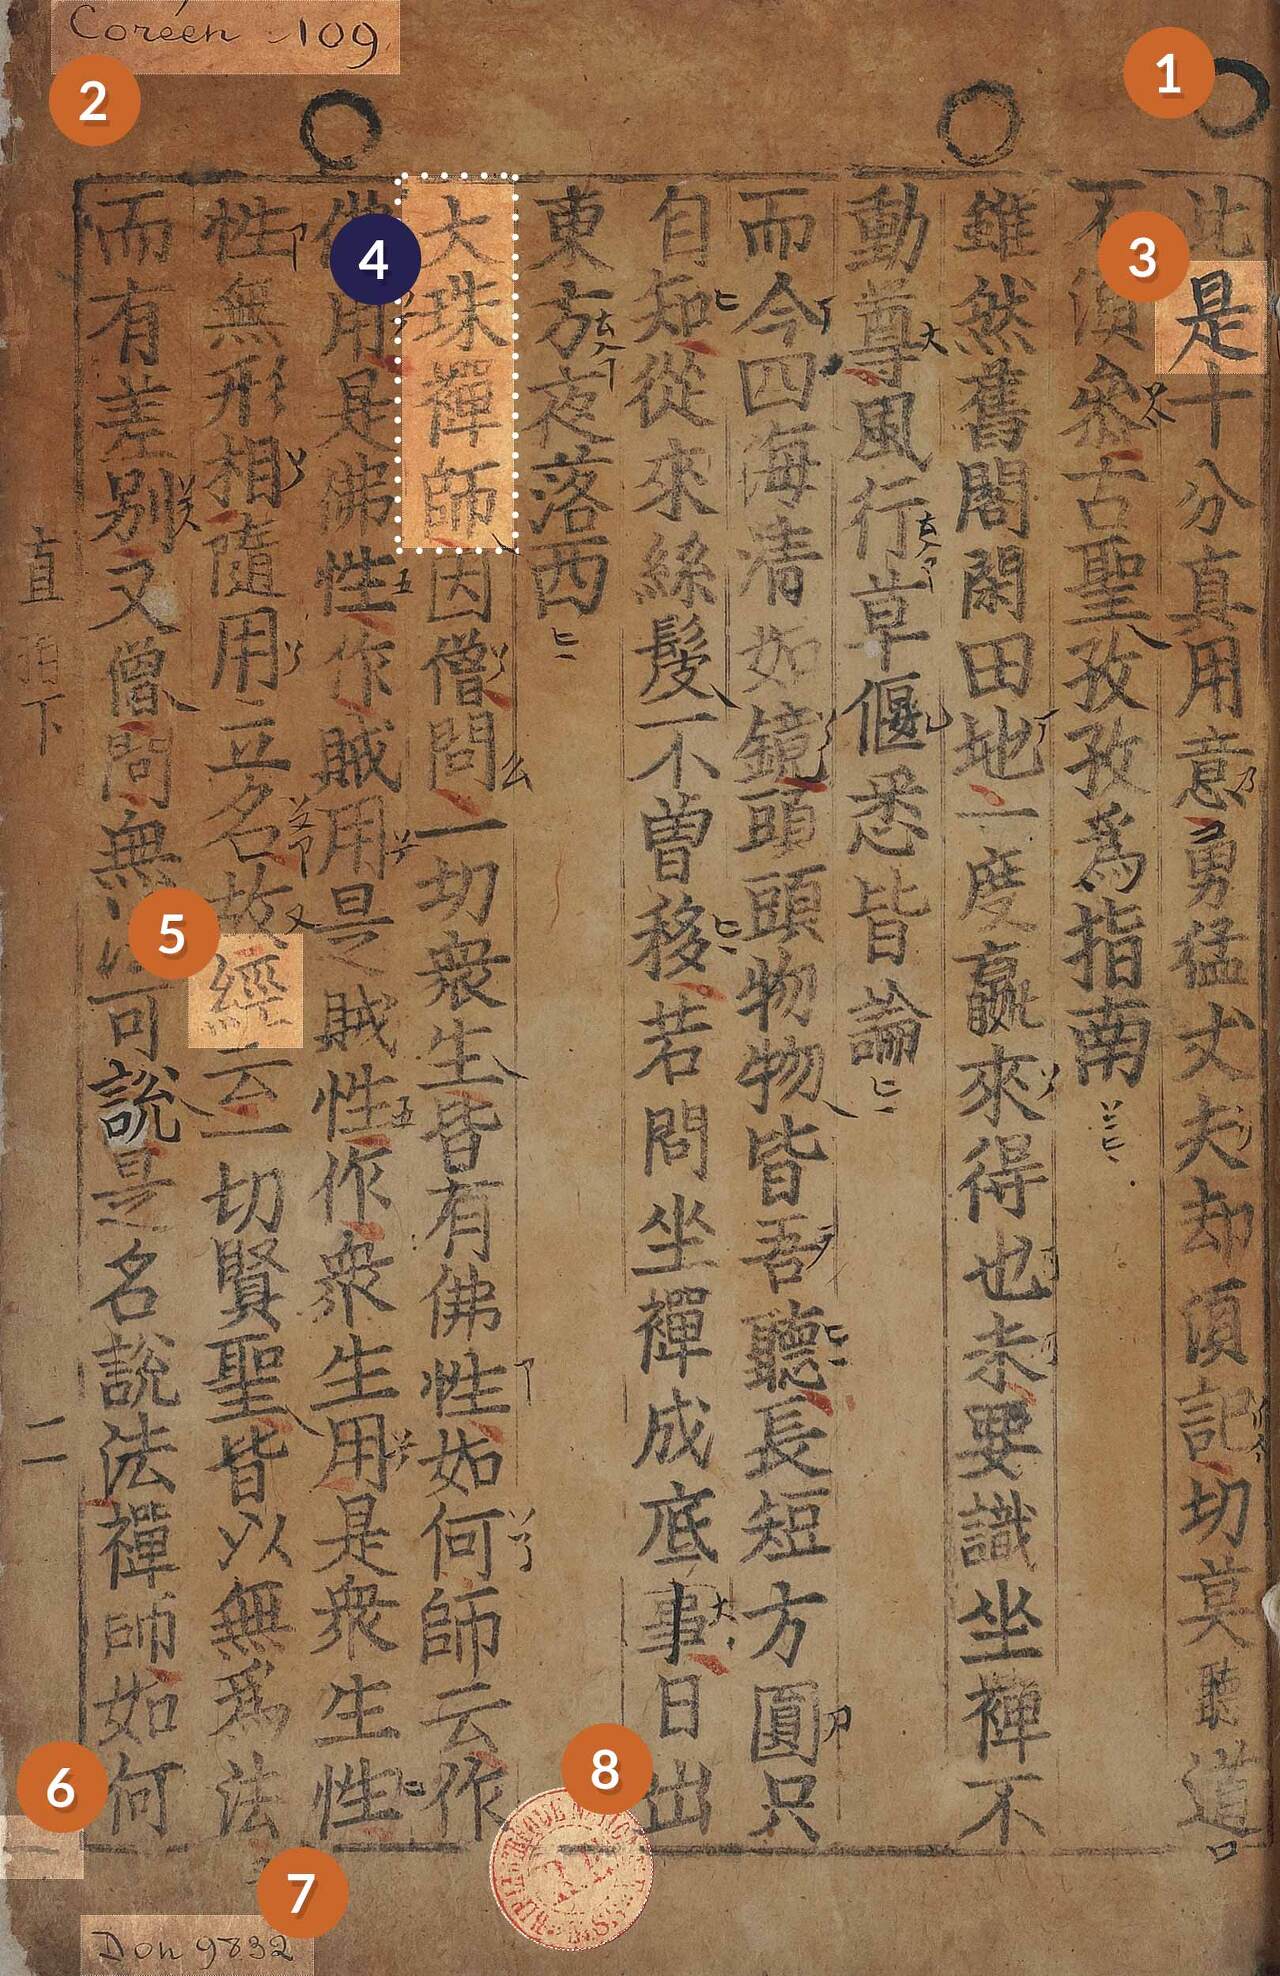 Coréen 109
此是十分真用意勇猛丈夫却湏記切莫聽道
不湏叅古聖孜孜為指南
雖然舊閣閑田地一度贏來得也未要識坐禪不
動尊風行草偃悉皆論
而今四海清如鏡頭頭物物皆吾聽長短方圓只
自知從來絲髮不曾移若問坐禪成底事日出
東方夜落西
大珠禪師因僧問一切衆生皆有佛性如何師云作
用是佛性作賊用是賊性作衆生用是衆生性
性無形相隨用立名故經云一切賢聖皆以無為法
而有差別又僧問無可說是名說法禪師如何
直指下
二
Don 9832
1
2
3
4
5
6
7
8